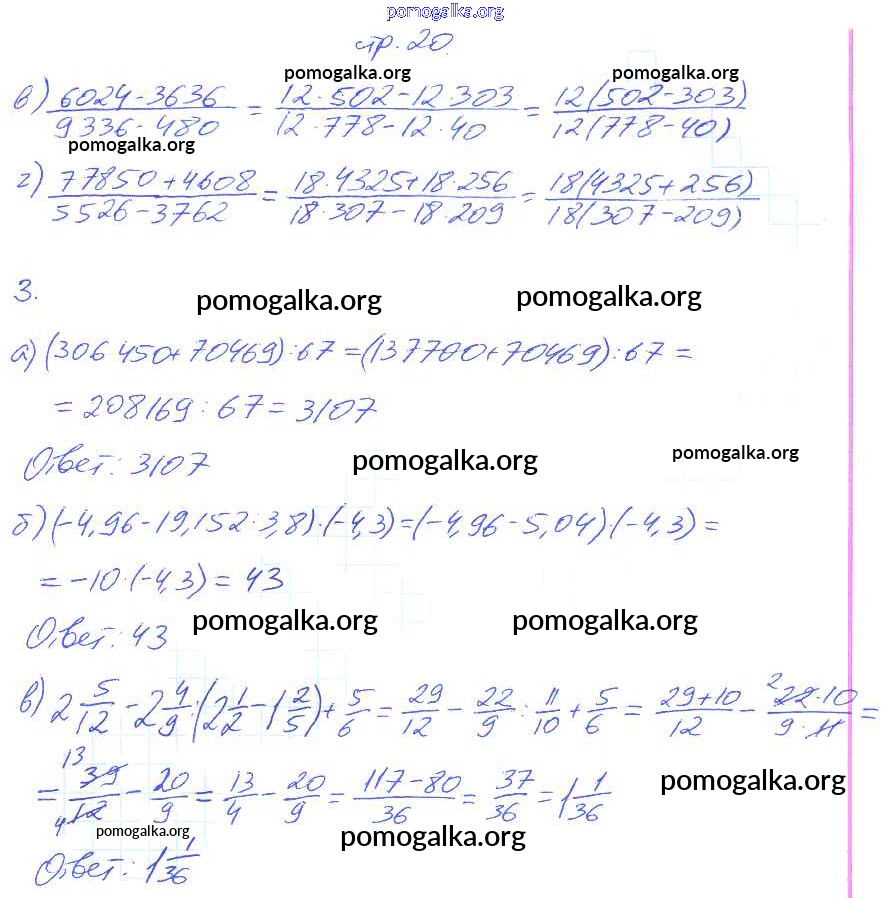 pomogalka.org
стр. 20.
pomogalka.org pomogalka.org
в) (6024 - 3636)/(9336 - 480) = (12·502 - 12·303)/(12·778 - 12·40) = 12(502 - 303)/12(778 - 40)
pomogalka.org
г) (77850 + 4608)/(5526 - 3762) = (18·4325 + 18·256)/(18·307 - 18·209) = 18(4325 + 256)/18(307 - 209)
3.
pomogalka.org pomogalka.org
а) (306·450 + 70469) : 67 = (137700 + 70469) : 67 =
= 208169 : 67 = 3107
Ответ: 3107
pomogalka.org pomogalka.org
б) (-4,96 - 19,152 : 3,8)·(-4,3) = (-4,96 - 5,04)·(-4,3) =
= -10·(-4,3) = 43
Ответ: 43
pomogalka.org pomogalka.org
в) 2 5/12 - 2 4/9 : (2 1/2 - 1 2/5) + 5/6 = 29/12 - 22/9 : 11/10 + 5/6 = (29+10)/12 - 2 22·10/(9·11) =
= 13 39/4 12 - 20/9 = 13/4 - 20/9 = (117 - 80)/36 = 37/36 = 1 1/36
pomogalka.org
pomogalka.org
pomogalka.org
Ответ: 1 1/36